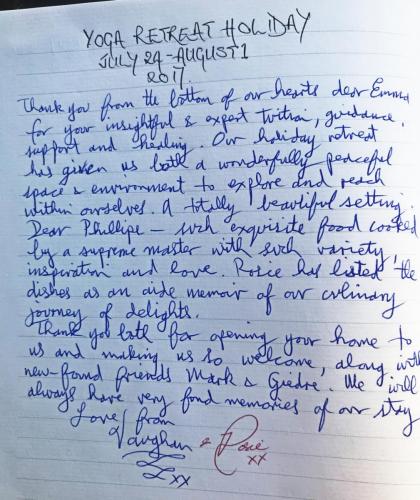 YOGA RETREAT HOLIDAY
JULY 24 - AUGUST 1
2017
Thank you from the bottom of our hearts dear Emma
for your insightful & expert tuition, guidance,
support and healing. Our holiday retreat
has given us both a wonderfully peaceful
space & environment to explore and reach
within ourselves. A totally beautiful setting.
Dear Phillipe - such exquisite food cooked
by a supreme master with such variety,
inspiration and love. Rosie has listed the
dishes as an aide memoir of our culinary
journey of delights.
Thank you both for opening your home to
us and making us so welcome, along with
new-found friends Mark & Giedre. We will
always have very fond memories of our stay
Love from
Vaughan & Rosie
xx
xx